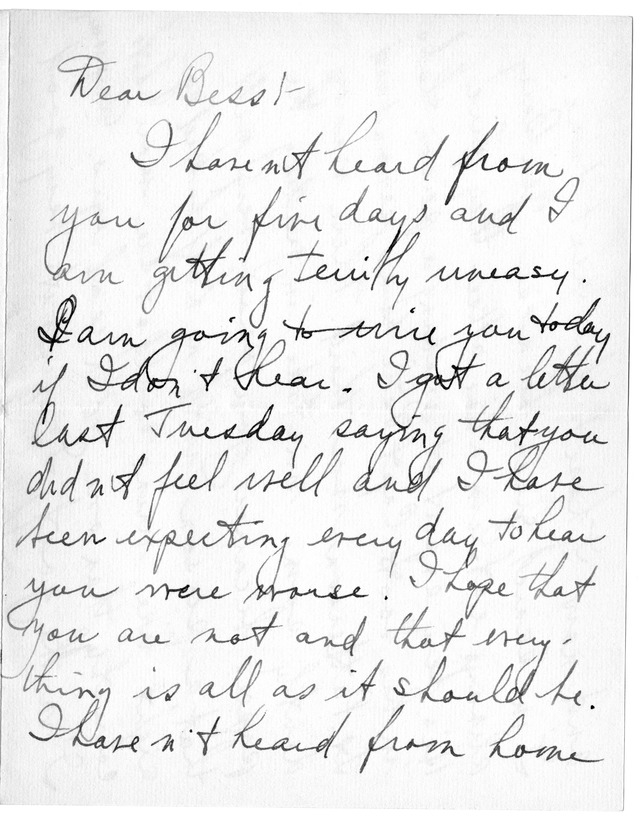 Dear Bess:-
I haven't heard from
you for five days and I
am getting terribly uneasy.
I am going to wire you today
if I don't hear. I got a letter
last Tuesday saying that you
didn't feel well and I have
been expecting every day to hear
you were worse. I hope that
you are not and that every-
thing is all as it should be.
I haven't heard from home